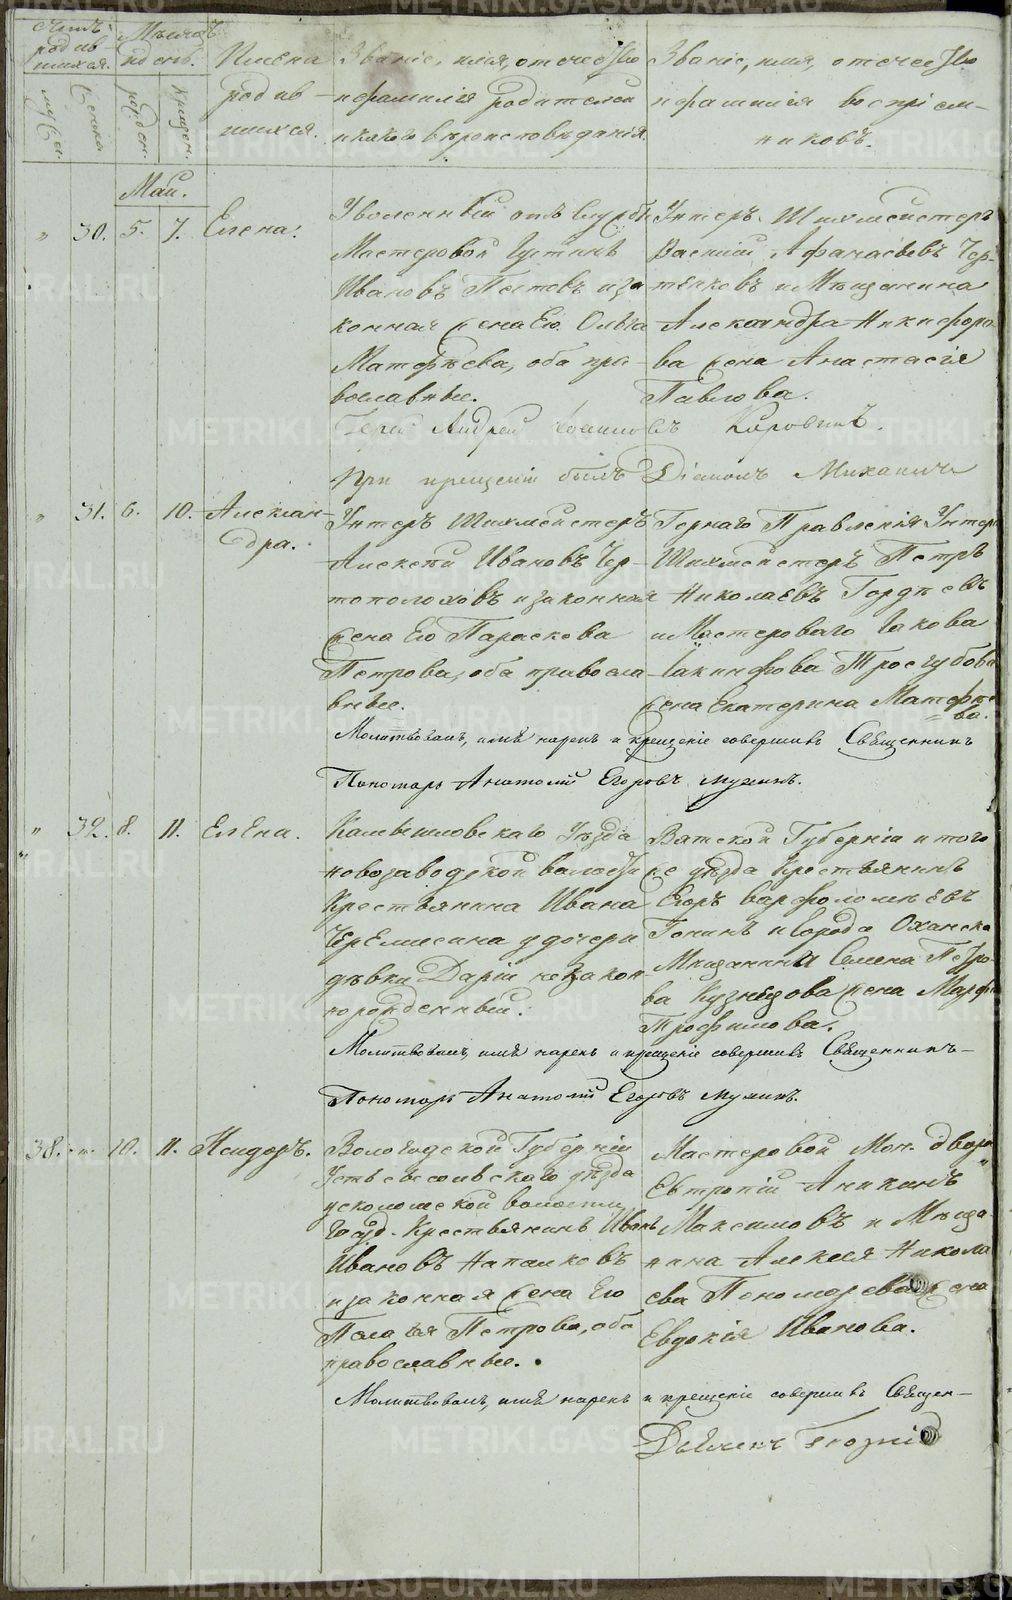 Счетъ родив-шихся.
Мѣсяцъ и день.
Имена родив-шихся.
Званіе, имя, отечество и фамилія родителей и какого вѣроисповѣданія.
Званіе, имя, отечество и фамилія воспріем-никовъ.
муж. пола.
женска.
рожден.
крещен.
Май.
" 30. 5. 7. Елена.
Уволенный отъ службы
Мастеровой Густинъ
Ивановъ Пестовъ и за
конная жена Его Ольга
Матфѣева, оба пра
вославные.
Унтеръ Шихтмейстеръ
Василій Афанасьевъ Чер-
тяковъ и Мѣщанина
Александра Никифоро
ва жена Анастасія
Павлова.
Іерей Андрей Іоанновъ Коровинъ.
При крещеніи былъ Діаконъ Михаилъ
" 31. 6. 10. Алексан-
дра.
Унтеръ Шихтмейстеръ
Алексѣй Ивановъ Чер-
тополоховъ и законная
жена Его Параскова
Петрова, оба правосла
вные.
Горнаго Правленія Унтеръ
Шихтмейстеръ Петръ
Николаевъ Гордѣевъ
и Мастероваго Іакова
Іакинфова Трегубова
жена Екатерина Матфѣе
ва.
Молитвовалъ, имя нарекъ и крещеніе совершилъ Священникъ
Пономарь Анатолій Егоровъ Мухинъ.
" 32. 8. 11. Елена.
Камышловскаго Уѣзда
новозаводской волости
Крестьянина Ивана
Черемисина у дочери
дѣвки Даріи незакон
норожденный.
Вятской Губерніи и того
же уѣзда Крестьянинъ
Егоръ Варфоломѣевъ
Гонинъ и города Оханска
Мѣщанина Семена Петро
ва Кузнецова жена Марфа
Трофимова.
Молитвовалъ, имя нарекъ и крещеніе совершилъ Священникъ-
Пономарь Анатолій Егоровъ Мухинъ.
38. " 10. 11. Исидоръ.
Вологодской Губерніи
Устьсысольскаго уѣзда
волости
Госуд. Крестьянинъ Иванъ
Ивановъ Напалковъ
и законная жена Его
Пелагія Петрова, оба
православные.
Мастеровой Мон. двора
Евтропій Аникинъ
Максимовъ и Мѣща
нина Алексея Никола
ева Пономарева жена
Евдокія Иванова.
Молитвовалъ, имя нарекъ и крещеніе совершилъ Священ-
METRIKI.GASO-URAL.RU